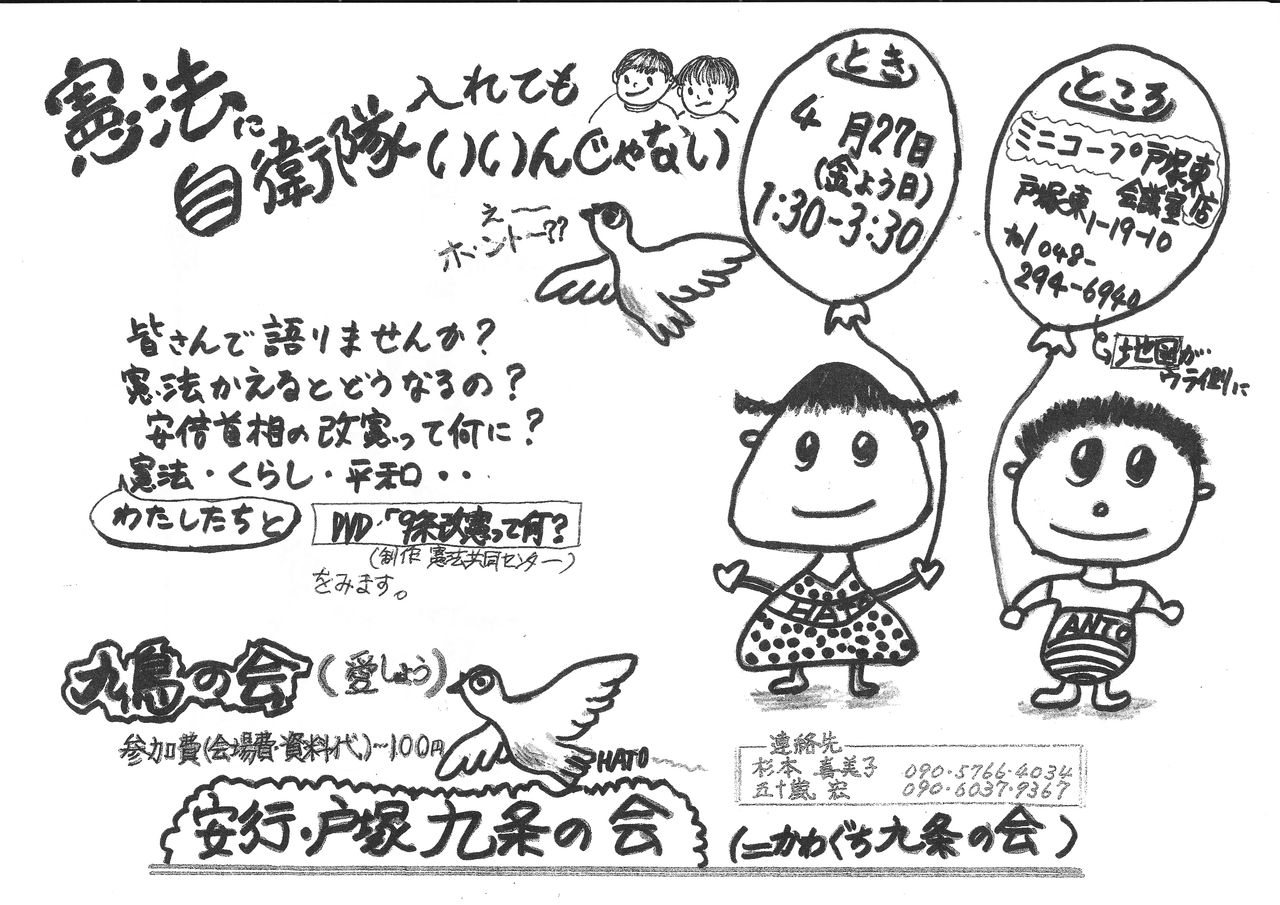 憲法に
自衛隊
入れても
いいんじゃない
えー
ホントー??
とき
4月27日
(金よう日)
1:30-3:30
ところ
ミニコープ戸塚東店
会議室
戸塚東1-19-10
tel 048-
294-6940
地図が
ウラ側に
皆さんで語りませんか?
憲法かえるとどうなるの?
安倍首相の改憲って何に?
憲法・くらし・平和・・
わたしたちと
DVD・「9条改憲って何?
(制作 憲法共同センター)
をみます。
HATO
ANTO
九鳥の会(愛しょう)
参加費(会場費・資料代)~100円
HATO
連絡先
杉本 喜美子 090-5766-4034
五十嵐 宏 090-6037-9367
安行・戸塚九条の会 (=かわぐち九条の会)